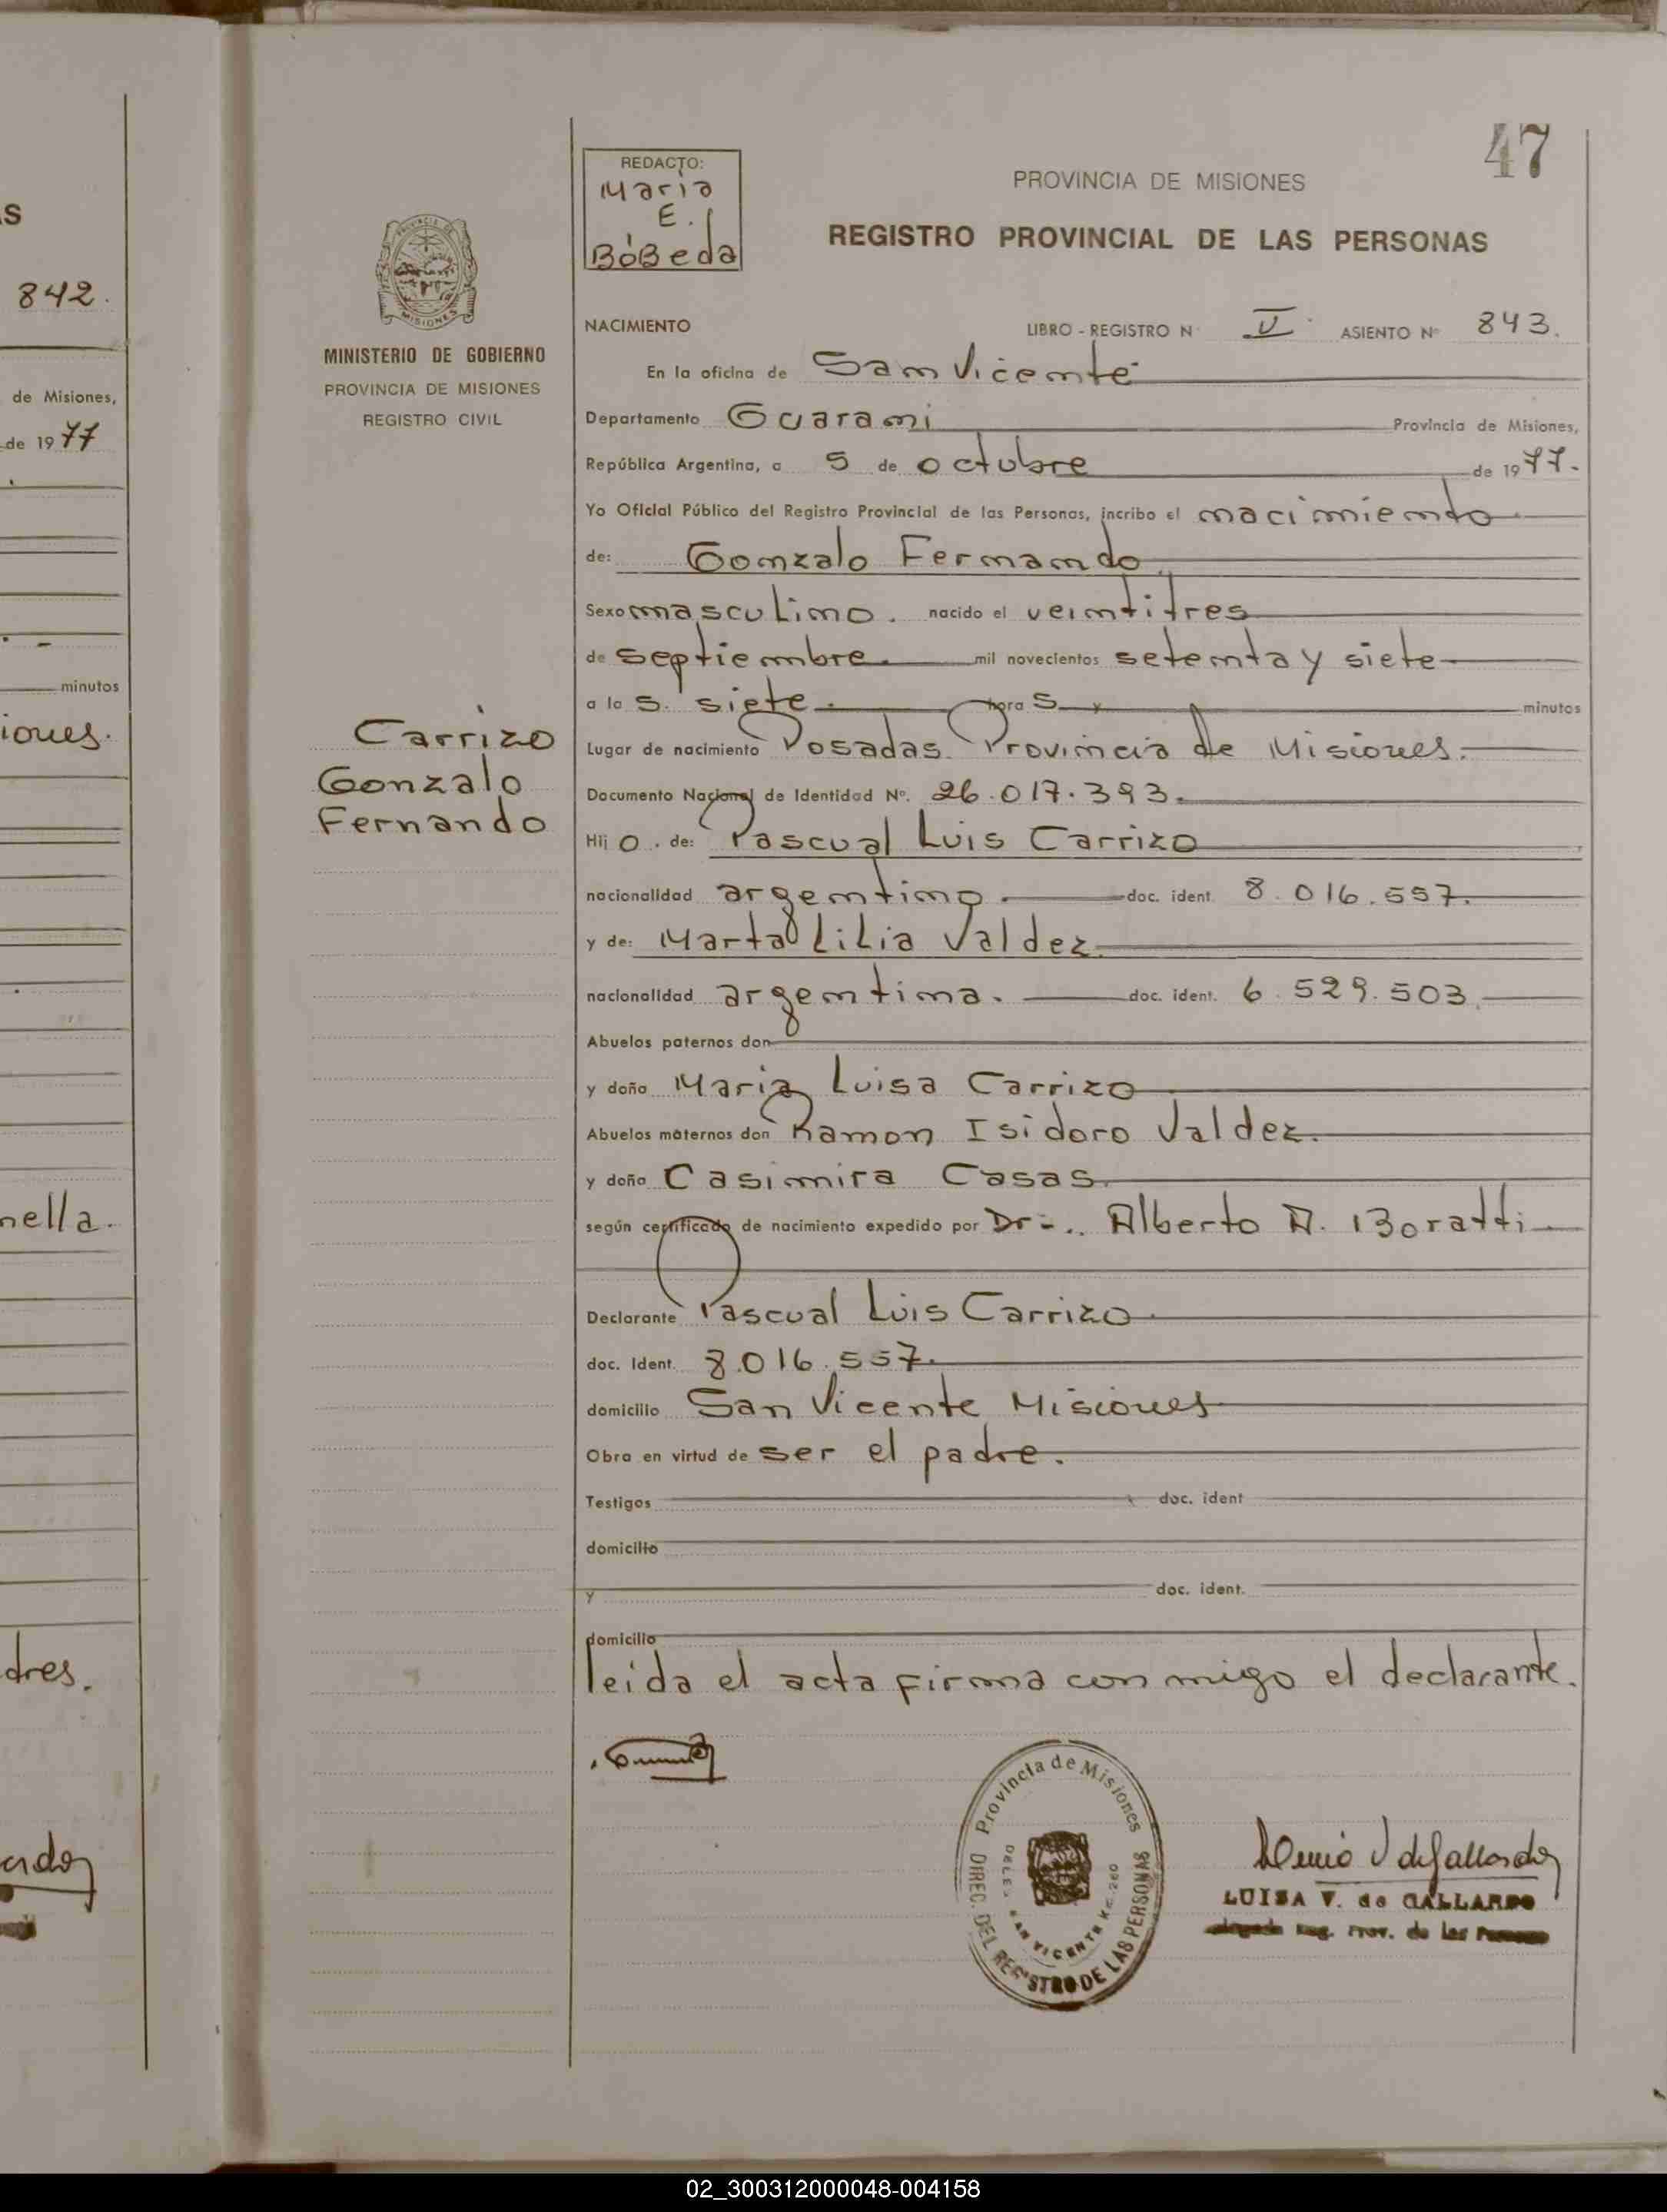 s
842.
de Misiones,
de 1977
minutos
iones.
nella.
dres.
47
REDACTO:
Maria
E.
BóBeda
PROVINCIA DE MISIONES
REGISTRO PROVINCIAL DE LAS PERSONAS
PROVINCIA DE
MISIONES
MINISTERIO DE GOBIERNO
PROVINCIA DE MISIONES
REGISTRO CIVIL
Carrizo
Gonzalo
Fernando
NACIMIENTO LIBRO - REGISTRO N° II ASIENTO N° 843.
En la oficina de San Vicente
Departamento Guarani Provincia de Misiones,
República Argentina, a 5 de octubre de 1977.
Yo Oficial Público del Registro Provincial de las Personas, incribo el nacimiento
de: Gonzalo Fernando
Sexo masculino. nacido el veintitres
de septiembre. mil novecientos setenta y siete
a la s. siete. hora s y minutos
Lugar de nacimiento Posadas. Provincia de Misiones.
Documento Nacional de Identidad N°. 26.017.393.
Hij o. de: Pascual Luis Carrizo
nacionalidad argentino. doc. ident. 8.016.557.
y de: Marta Lilia Valdez
nacionalidad argentina. doc. ident. 6.529.503.
Abuelos paternos don
y doña Maria Luisa Carrizo
Abuelos maternos don Ramon Isidoro Valdez.
y doña Casimira Casas.
según certificado de nacimiento expedido por Dr.. Alberto A. Boratti
Declarante Pascual Luis Carrizo
doc. Ident. 8.016.557.
domicilio San Vicente Misiones
Obra en virtud de ser el padre.
Testigos doc. ident
domicilio
y doc. ident.
domicilio
leida el acta firma con migo el declarante.
Provincia de Misiones
DIREC. DEL REGISTRO DE LAS PERSONAS
SAN VICENTE
LUISA V. de GALLARDO
Reg. Prov. de las Personas
02_300312000048-004158